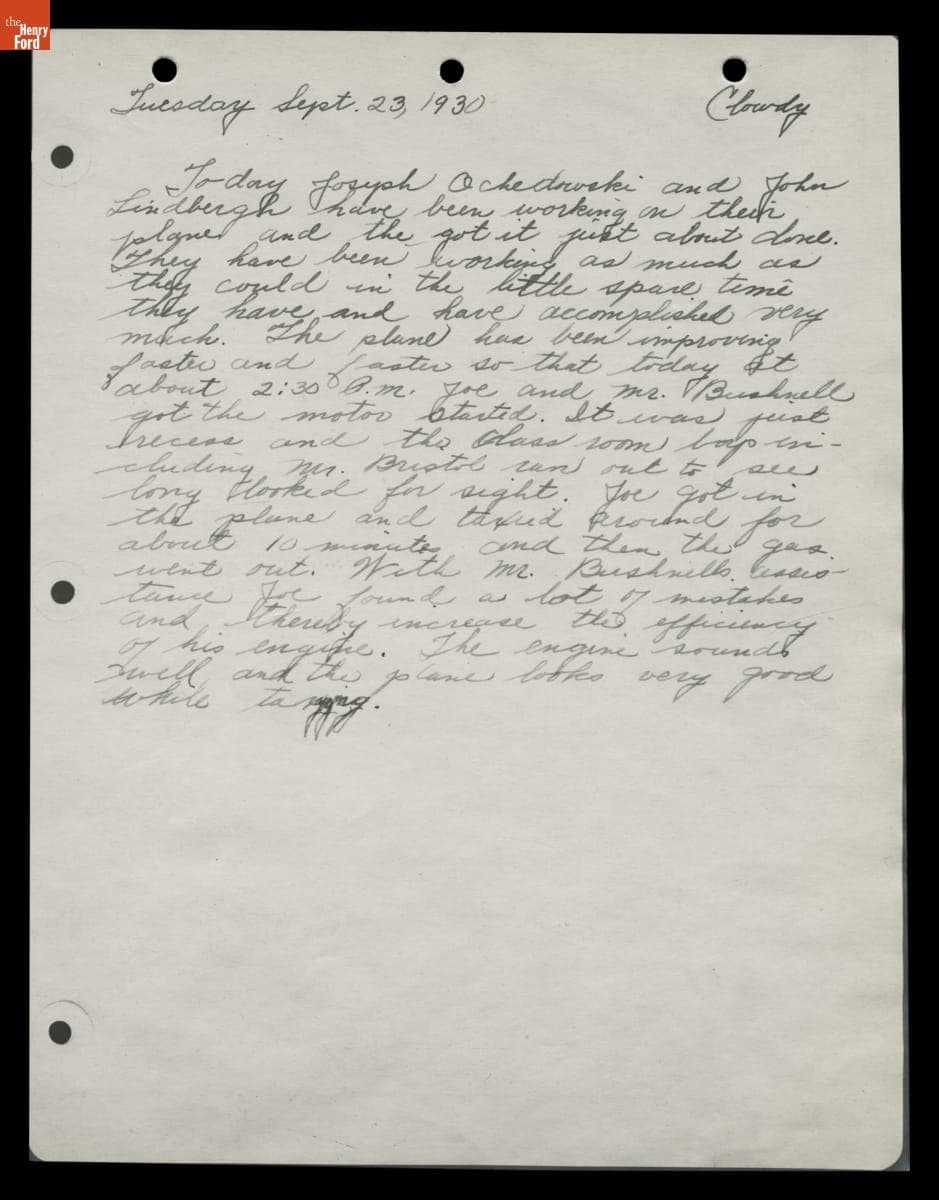 the
Henry
Ford
Tuesday Sept. 23, 1930 Clowdy
To-day Joseph Ochedowski and John
Lindbergh have been working on their
plane and the got it just about done.
They have been working as much as
they could in the little spare time
they have and have accomplished very
much. The plane has been improving
faster and faster so that today at
about 2:30 P.M. Joe and Mr. Bushnell
got the motor started. It was just
recess and the Class room boys in-
cluding Mr. Bristol ran out to see
long looked for sight. Joe got in
the plane and taxied around for
about 10 minutes and then the gas
went out. With Mr. Bushnells assis-
tance Joe found a lot of mistakes
and thereby increase the efficiency
of his engine. The engine sounds
swell and the plane looks very good
while